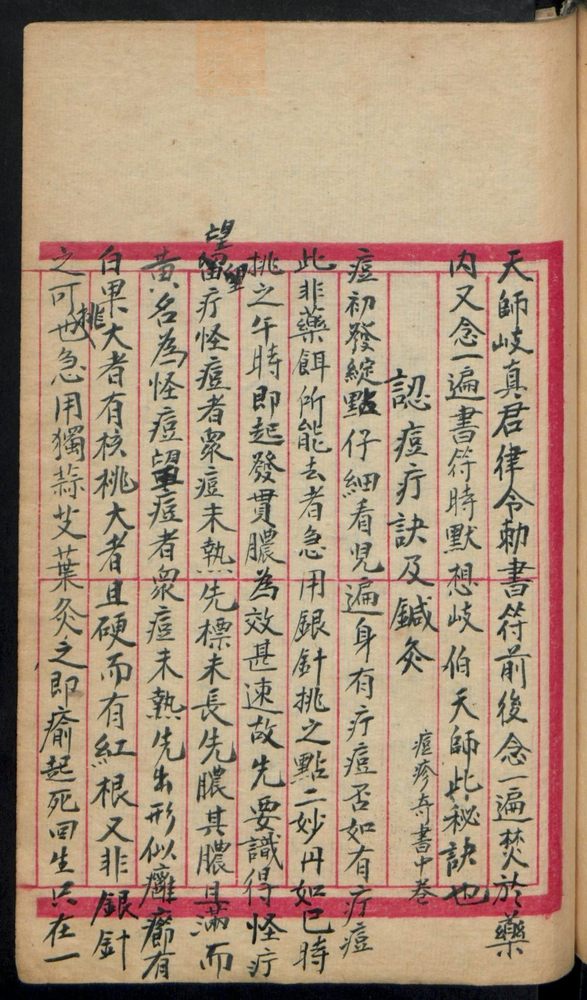 天師岐真君律令勅書符前後念一遍焚於藥
內又念一遍書符時默想岐伯天師此秘訣也
認痘疔訣及鍼灸
痘疹奇書中卷
痘初發綻點仔細看兒遍身有疔痘否如有疔痘
此非藥餌所能去者急用銀針挑之點二妙丹如巳時
挑之午時即起發貫膿為效甚速故先要識得怪疔
望
留望疔怪痘者衆痘未熟先標未長先膿其膿具滿而
黃名為怪痘望痘者衆痘未熟先出形似癰癤有
白果大者有核桃大者且硬而有紅根又非銀針
之可挑也急用獨蒜艾葉灸之即瘉起死回生只在一